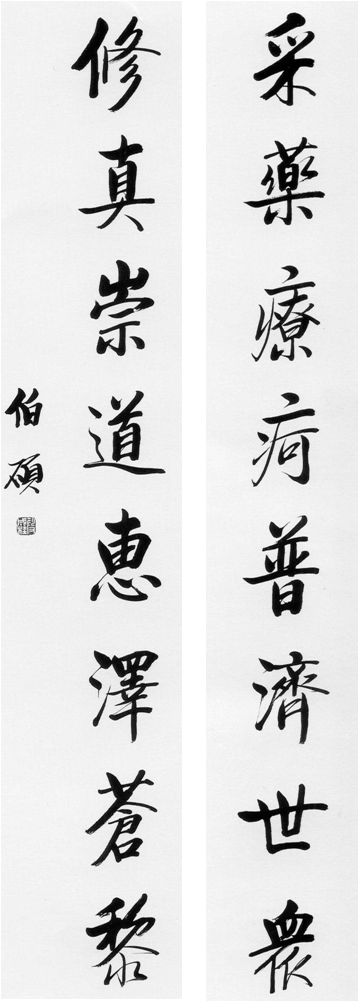 采藥療疴普濟世眾
修真崇道惠澤蒼黎
伯碩